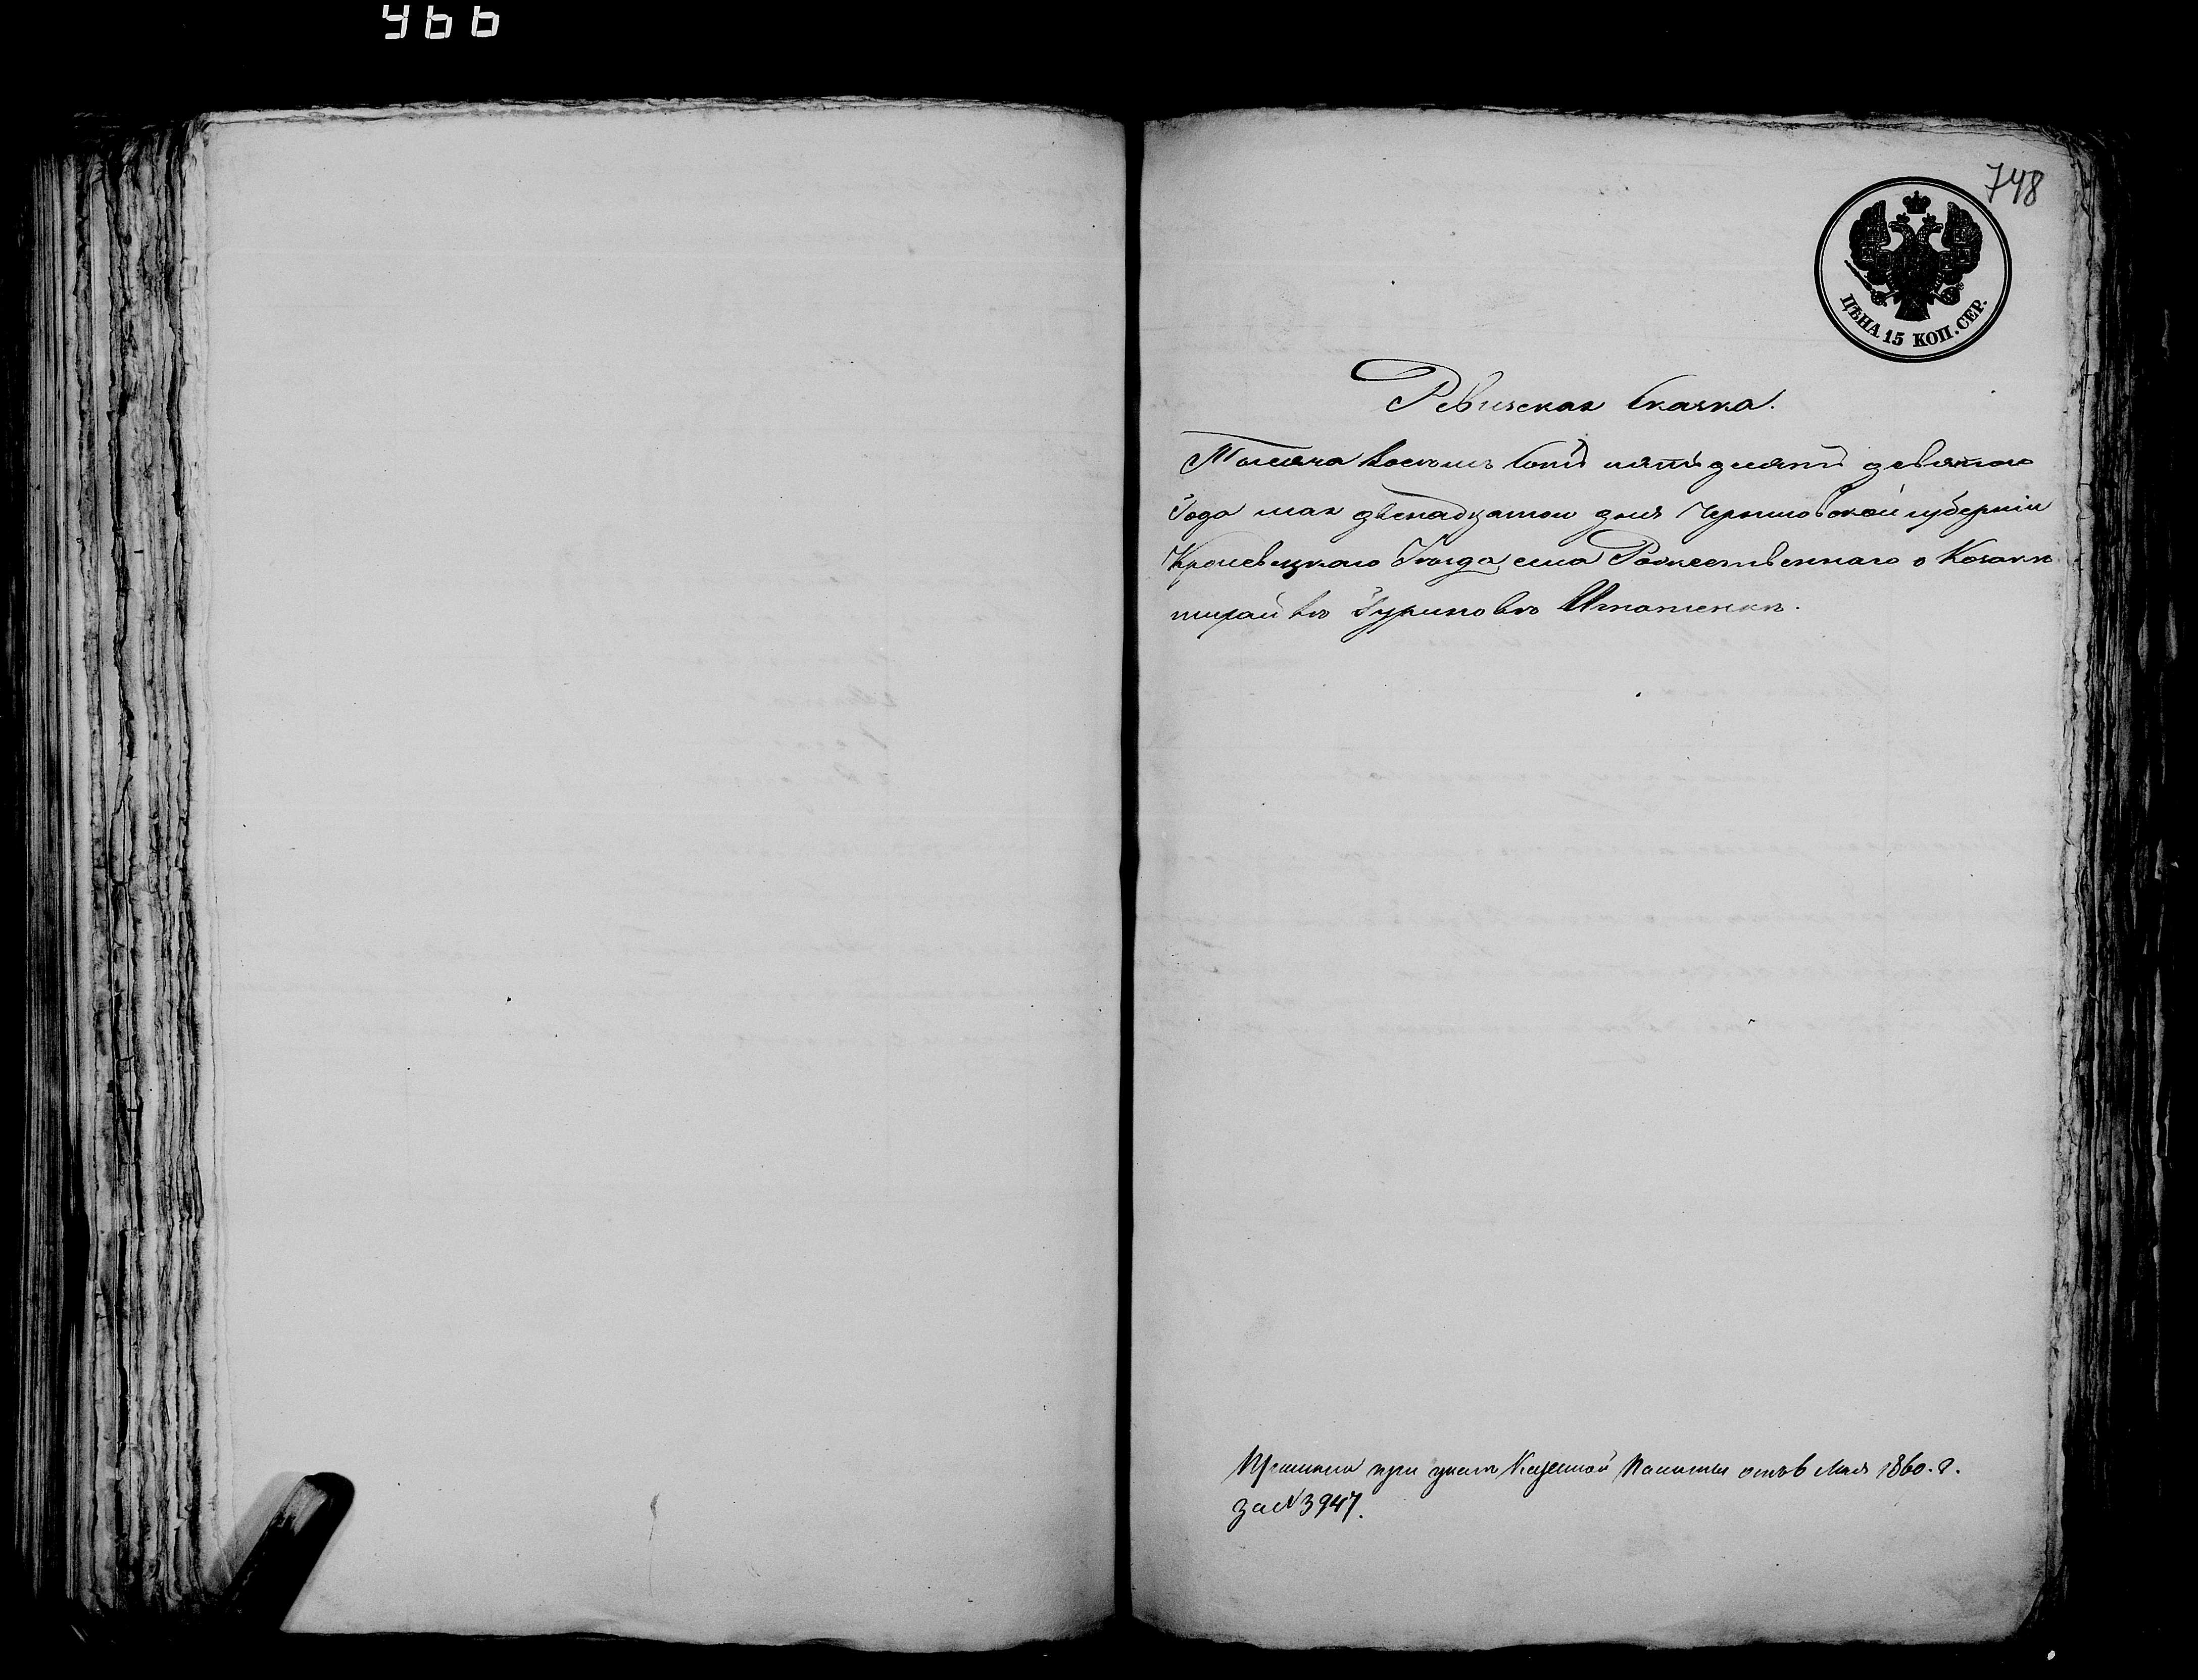 466
748
ЦѢНА 15 КОП. СЕР.
Ревизская Сказка.
Тысяча восемь сотъ пятьдесятъ девятого
Года мая двенадцатого дня Черниговской губерніи
Кролевецкаго Уѣзда, села Рожественнаго о Козакѣ
Гурьиновѣ Игнатенкѣ.
при указѣ Казенной Палаты отъ 6 Мая 1860. г.
за № 3947.